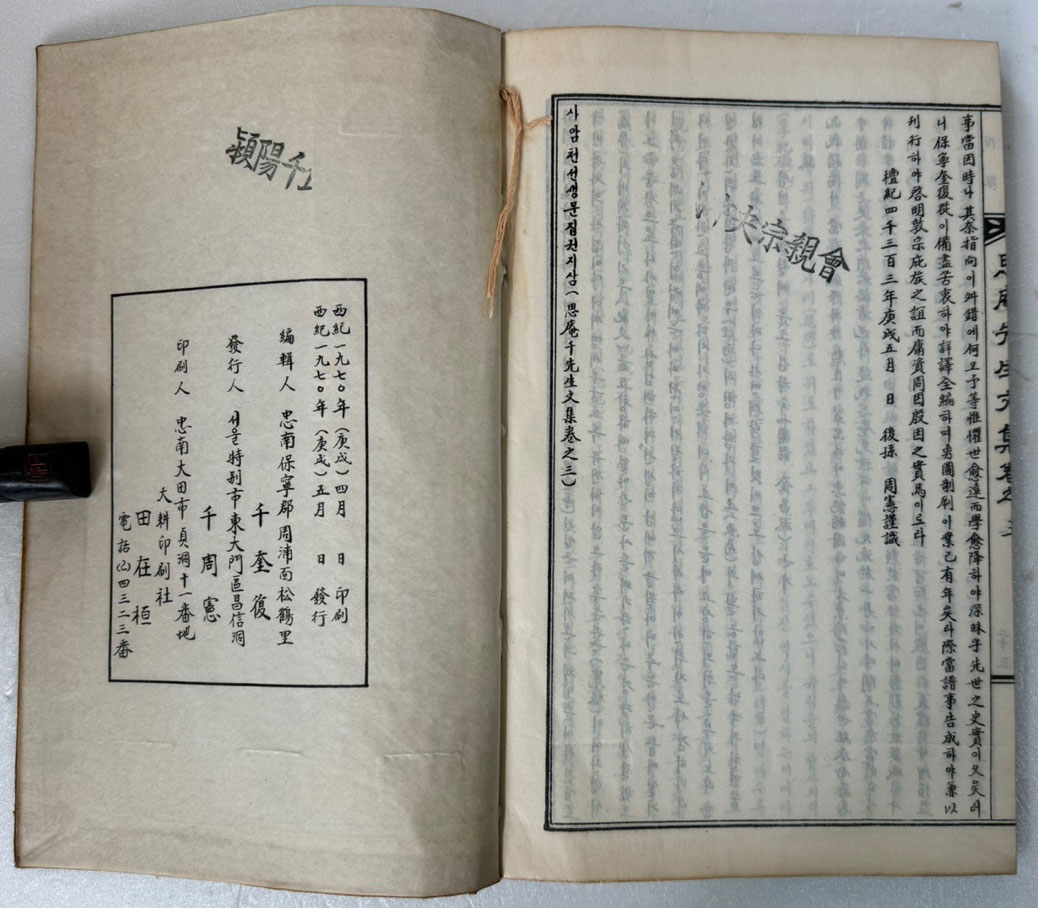 事當因時나 其奈指向이 舛錯에 何오 予等惟懼世愈遠而學愈降하야 深昧乎先世之史實이 久矣러
니 保寧奎復從이 備盡苦衷하야 詳譯全編하며 另圖制刷이 業已有年矣라 際當譜事告成하야 兼以
刊行하야 啓明敦宗庇族之誼而庸資周因殷因之實焉이로라
檀紀四千三百三年庚戌五月 日 後孫 周憲謹識
사암천선생문집권지삼(思庵千先生文集卷之三)
央宗親會
思庵先生文集卷之三
二十三
潁陽千
西紀一九七○年(庚戌)四月 日 印刷
西紀一九七○年(庚戌)五月 日 發行
編輯人 忠南保寧郡周浦面松鶴里
千奎復
發行人 서울特別市東大門區昌信洞
千周憲
印刷人 忠南大田市貞洞十一番地
大耕印刷社
田在桓
電話(2)四三二三番